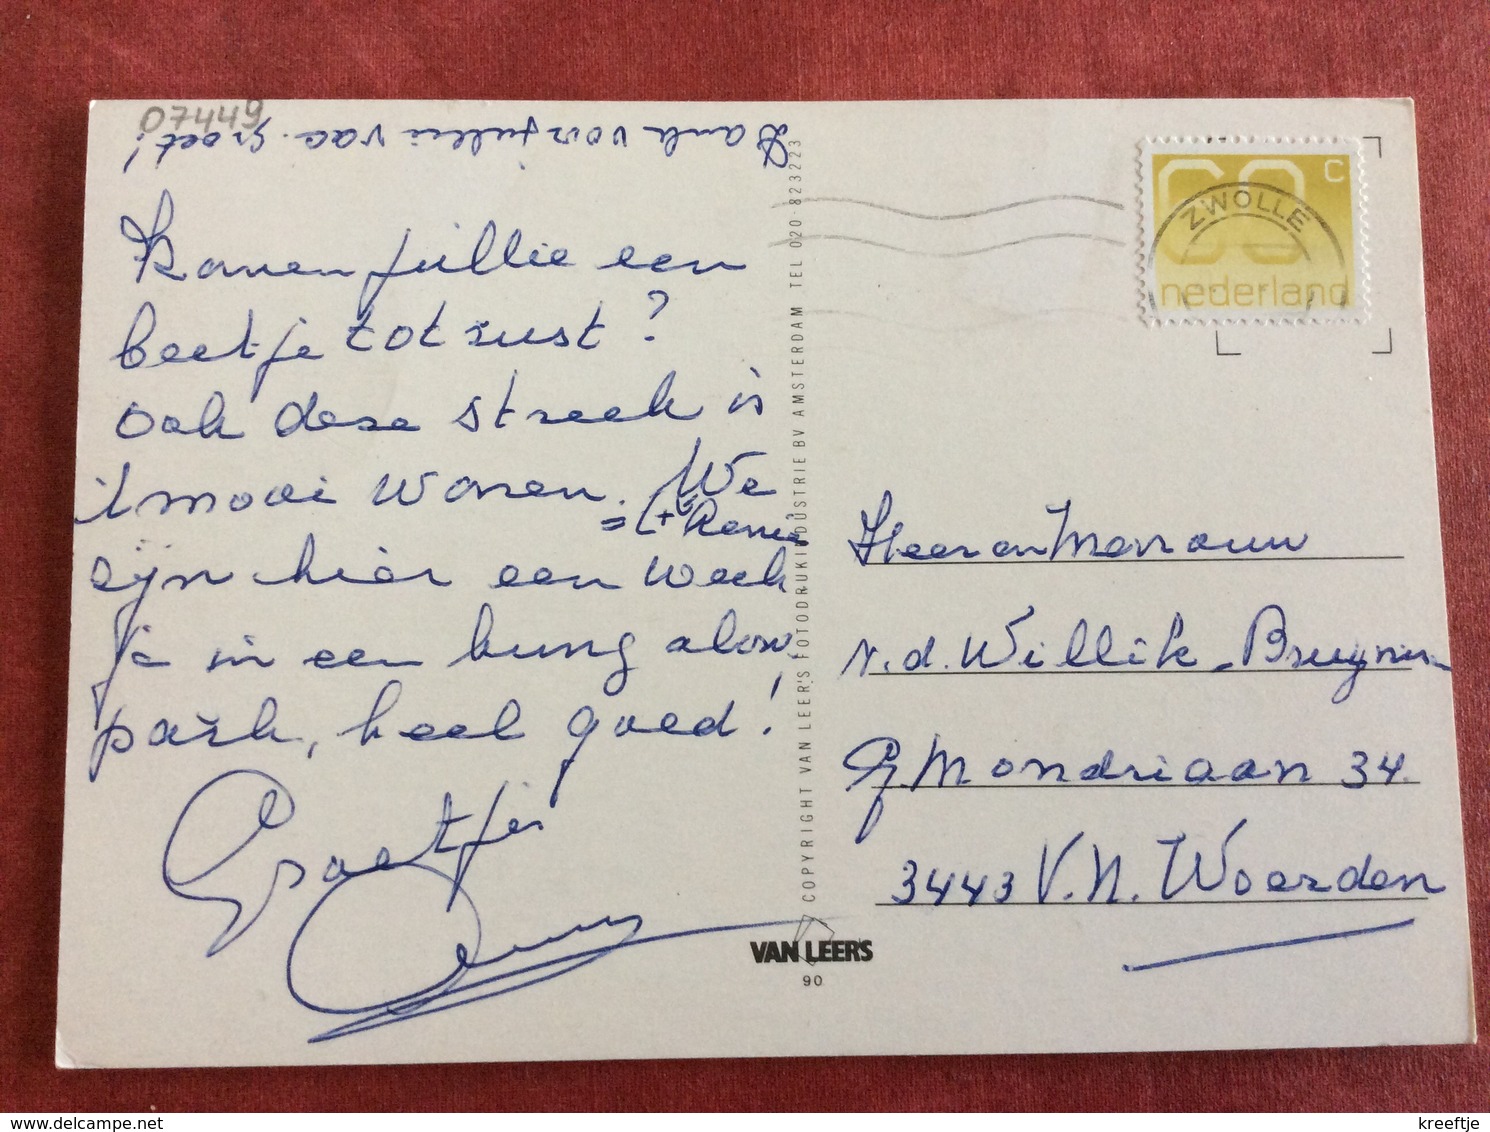 07449
Dank voor jullie vac. groet!
Konen jullie een
beetje tot rust?
ook deze streek is
't mooi wonen. We
= (+ Renie
zijn hier een week
je in een bung alow
park, heel goed!
Groetjes
Heer en Mevrouw
v.d. Willik - Bruynen
P Mondriaan 34.
3443 V.N. Woerden
COPYRIGHT VAN LEER'S FOTODRUKINDUSTRIE BV AMSTERDAM TEL 020 - 823223
VAN LEER'S
90
60 c
nederland
ZWOLLE
kreeftje